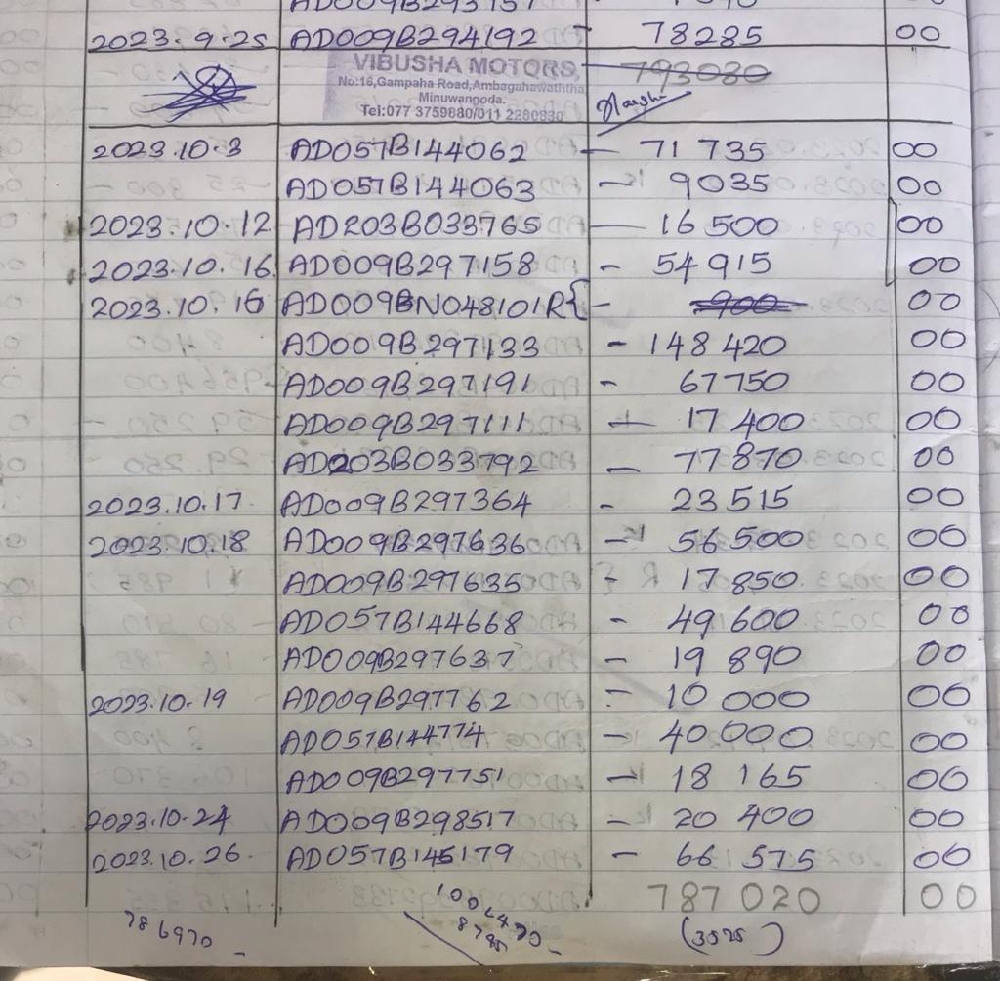 AD009B293757
2023.9.25 AD009B294192 - 78285 00
VIBUSHA MOTORS 793030
No:16,Gampaha Road,Ambagahawaththa
Minuwangoda.
Tel:077 3759880/011 2280830
2023.10.3 AD057B144062 - 71 735 00
AD057B144063 - 9035 00
2023.10.12 AD203B033765 - 16 500 00
2023.10.16 AD009B297158 - 54 915 00
2023.10.16 AD009BN048101R{ - 900 00
AD009B297133 - 148 420 00
AD009B297191 - 67750 00
AD009B297111 - 17 400 00
AD203B033792 - 77870 00
2023.10.17. AD009B297364 - 23 515 00
2023.10.18 AD009B297636 - 56 500 00
AD009B297635 - 17 850 00
AD057B144668 - 49 600 00
AD009B297637 - 19 890 00
2023.10.19 AD009B297762 - 10 000 00
AD057B144774 - 40 000 00
AD009B297751 - 18 165 00
2023.10.24 AD009B298517 - 20 400 00
2023.10.26. AD057B145179 - 66 575 00
787 020 00
786970 - (3525)